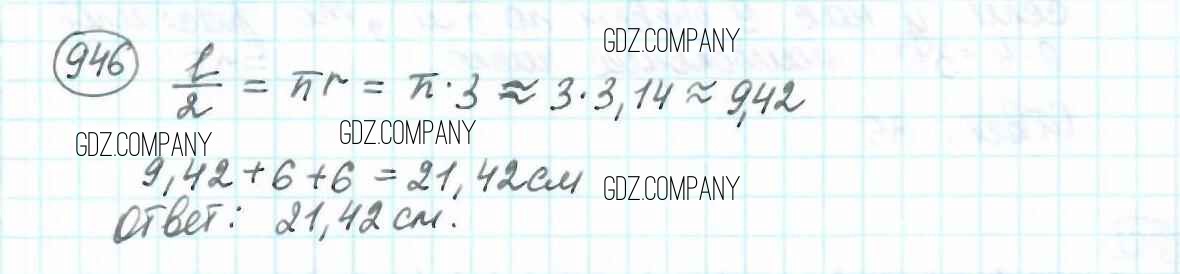 946
GDZ.COMPANY
l/2 = πr = π·3 ≈ 3·3,14 ≈ 9,42
GDZ.COMPANY GDZ.COMPANY
9,42+6+6 = 21,42см
GDZ.COMPANY
Ответ: 21,42 см.